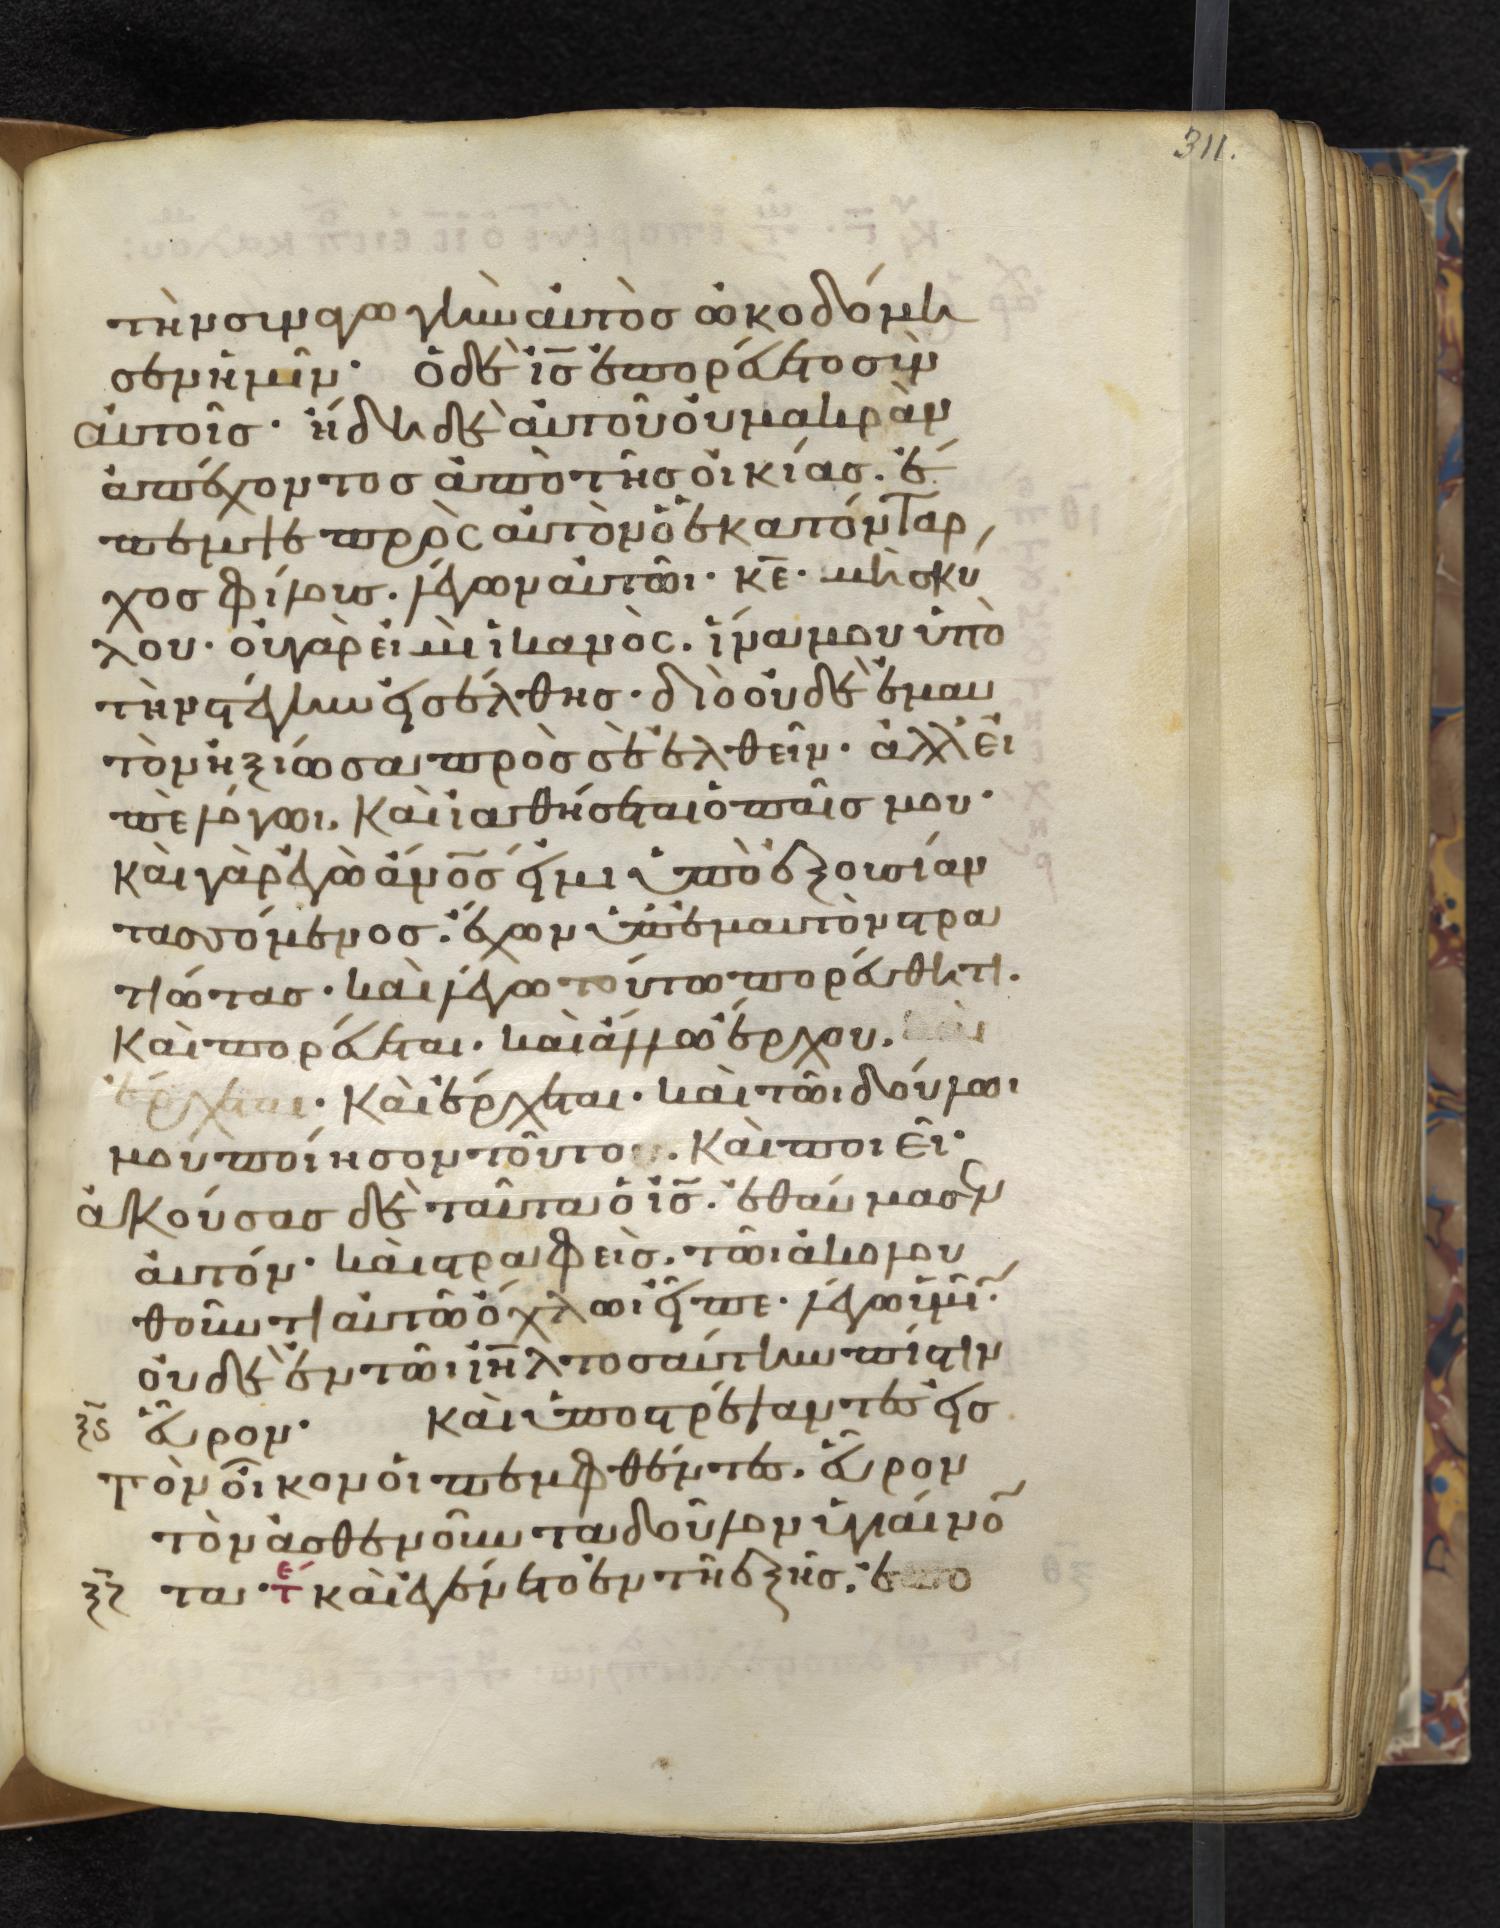 311.
τὴν συναγωγὴν αὐτὸς ὠκοδόμη
σεν ἡμῖν· ὁ δὲ ι̅ς̅ ἐπορεύετο σὺν
αὐτοῖς· ἤδη δὲ αὐτοῦ οὐ μακρὰν
ἀπέχοντος ἀπὸ τῆς οἰκίας. ἔ
πεμψε πρὸς αὐτὸν ὁ ἑκατόνταρ
χος φίλους. λέγων αὐτῶι· κ̅ε̅· μὴ σκύ
λου· οὐ γὰρ εἰμὶ ἱκανὸς. ἵνα μου ὑπὸ
τὴν στέγην εἰσέλθης· διὸ οὐδὲ ἐμαυ
τὸν ἠξίωσα πρὸς σὲ ἐλθεῖν· ἀλλ' εἰ
πὲ λόγωι. καὶ ἰαθήσεται ὁ παῖς μου·
καὶ γὰρ ἐγὼ ἄ̅ν̅ο̅ς̅ εἰμι ὑπὸ ἐξουσίαν
τασσόμενος. ἔχων ὑπ' ἐμαυτὸν στρα
τιώτας· καὶ λέγω τούτω πορεύθητι.
καὶ πορεύεται· καὶ ἄλλω ἔρχου. καὶ
ἔρχεται· καὶ ἔρχεται· καὶ τῶι δούλωι
μου ποίησον τοῦτο. καὶ ποιεῖ·
ἀκούσας δὲ ταῦτα ὁ ι̅ς̅. ἐθαύμασεν
αὐτόν· καὶ στραφεὶς. τῶι ἀκολου
θοῦντι αὐτῶ ὄχλωι εἶπε· λέγω ὑμῖ̅·
οὐδὲ ἐν τῶι ι̅η̅λ̅ τοσαύτην πίστιν
ξς εὗρον· καὶ ὑποστρέψαντες εἰς
τὸν οἶκον οἱ πεμφθέντες. εὗρον
τὸν ἀσθενοῦντα δοῦλον ὑγιαίνο̅
ξζ τα· τε καὶ ἐγένετο ἐν τῆ ἑξῆς. ἐπο